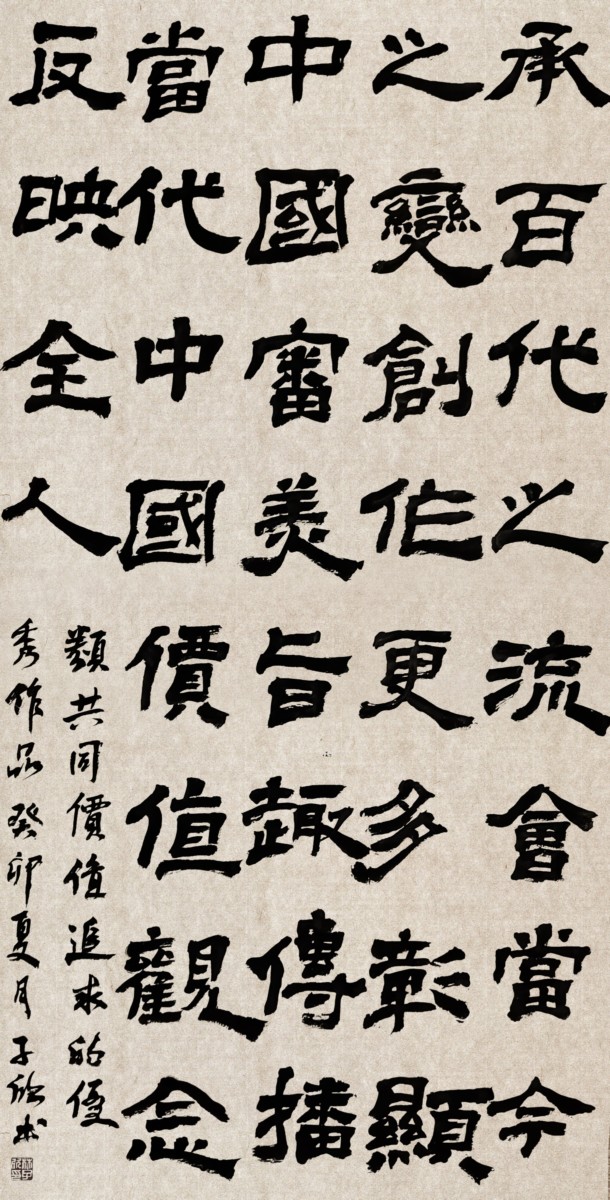 承百代之流會當今
之變創作更多彰顯
中國審美旨趣傳播
當代中國價值觀念
反映全人
類共同價值追求的優
秀作品癸卯夏月子欣書